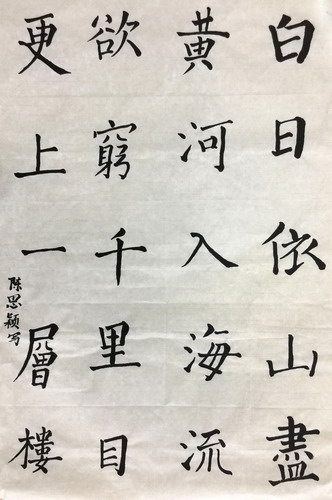 白日依山盡
黃河入海流
欲窮千里目
更上一層樓
陈思颖写